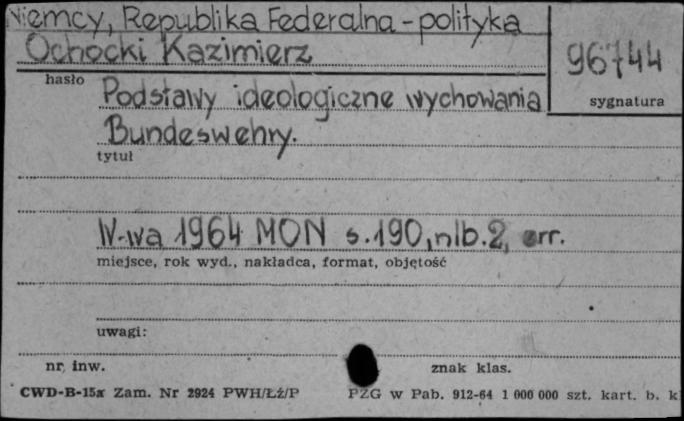 Niemcy, Republika Federalna - polityka
Ochocki Kazimierz
96744
hasło
sygnatura
Podstawy ideologiczne wychowania
Bundeswehry.
tytuł
W-wa 1964 MON s.190, nlb.2, err.
miejsce, rok wyd., nakładca, format, objętość
uwagi:
nr. inw.
znak klas.
CWD-B-15a Zam. Nr 2924 PWH/Łź/P
PZG w Pab. 912-64 1 000 000 szt. kart. b. k